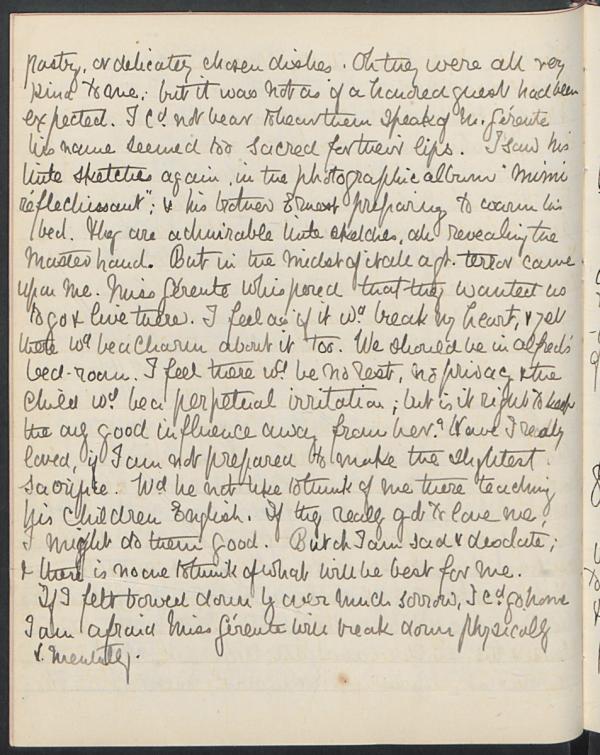 pastry, or delicately chosen dishes. Oh they were all very
kind to me; but it was not as if a hundred guests had been
expected. I cd. not bear to hear them speak of M. Gérente
his name seemed too sacred for their lips. I saw his
little sketches again, in the photographic album "Mimi
réflechissant"; & his brother Ernest preparing to warm his
bed. They are admirable little sketches, all revealing the
master hand. But in the midst of it all a gt. terror came
upon me. Miss Gérente whispered that they wanted us
to go & live there. I feel as if it wd break my heart, & yet
there wd be a charm about it too. We should be in Alfred's
bed-room. I feel there wd. be no rest, no privacy & the
child wd. be a perpetual irritation; but is it right to keep
the only good influence away from her? Have I really
loved, if I am not prepared to make the slightest
sacrifice. Wd he not like to think of me there teaching
his children English. If they really got to love me,
I might do them good. But oh I am sad & desolate;
& there is no one to think of what will be best for me.
If I felt bowed down by over much sorrow, I cd. go home
I am afraid Miss Gérente will break down physically
& mentally.